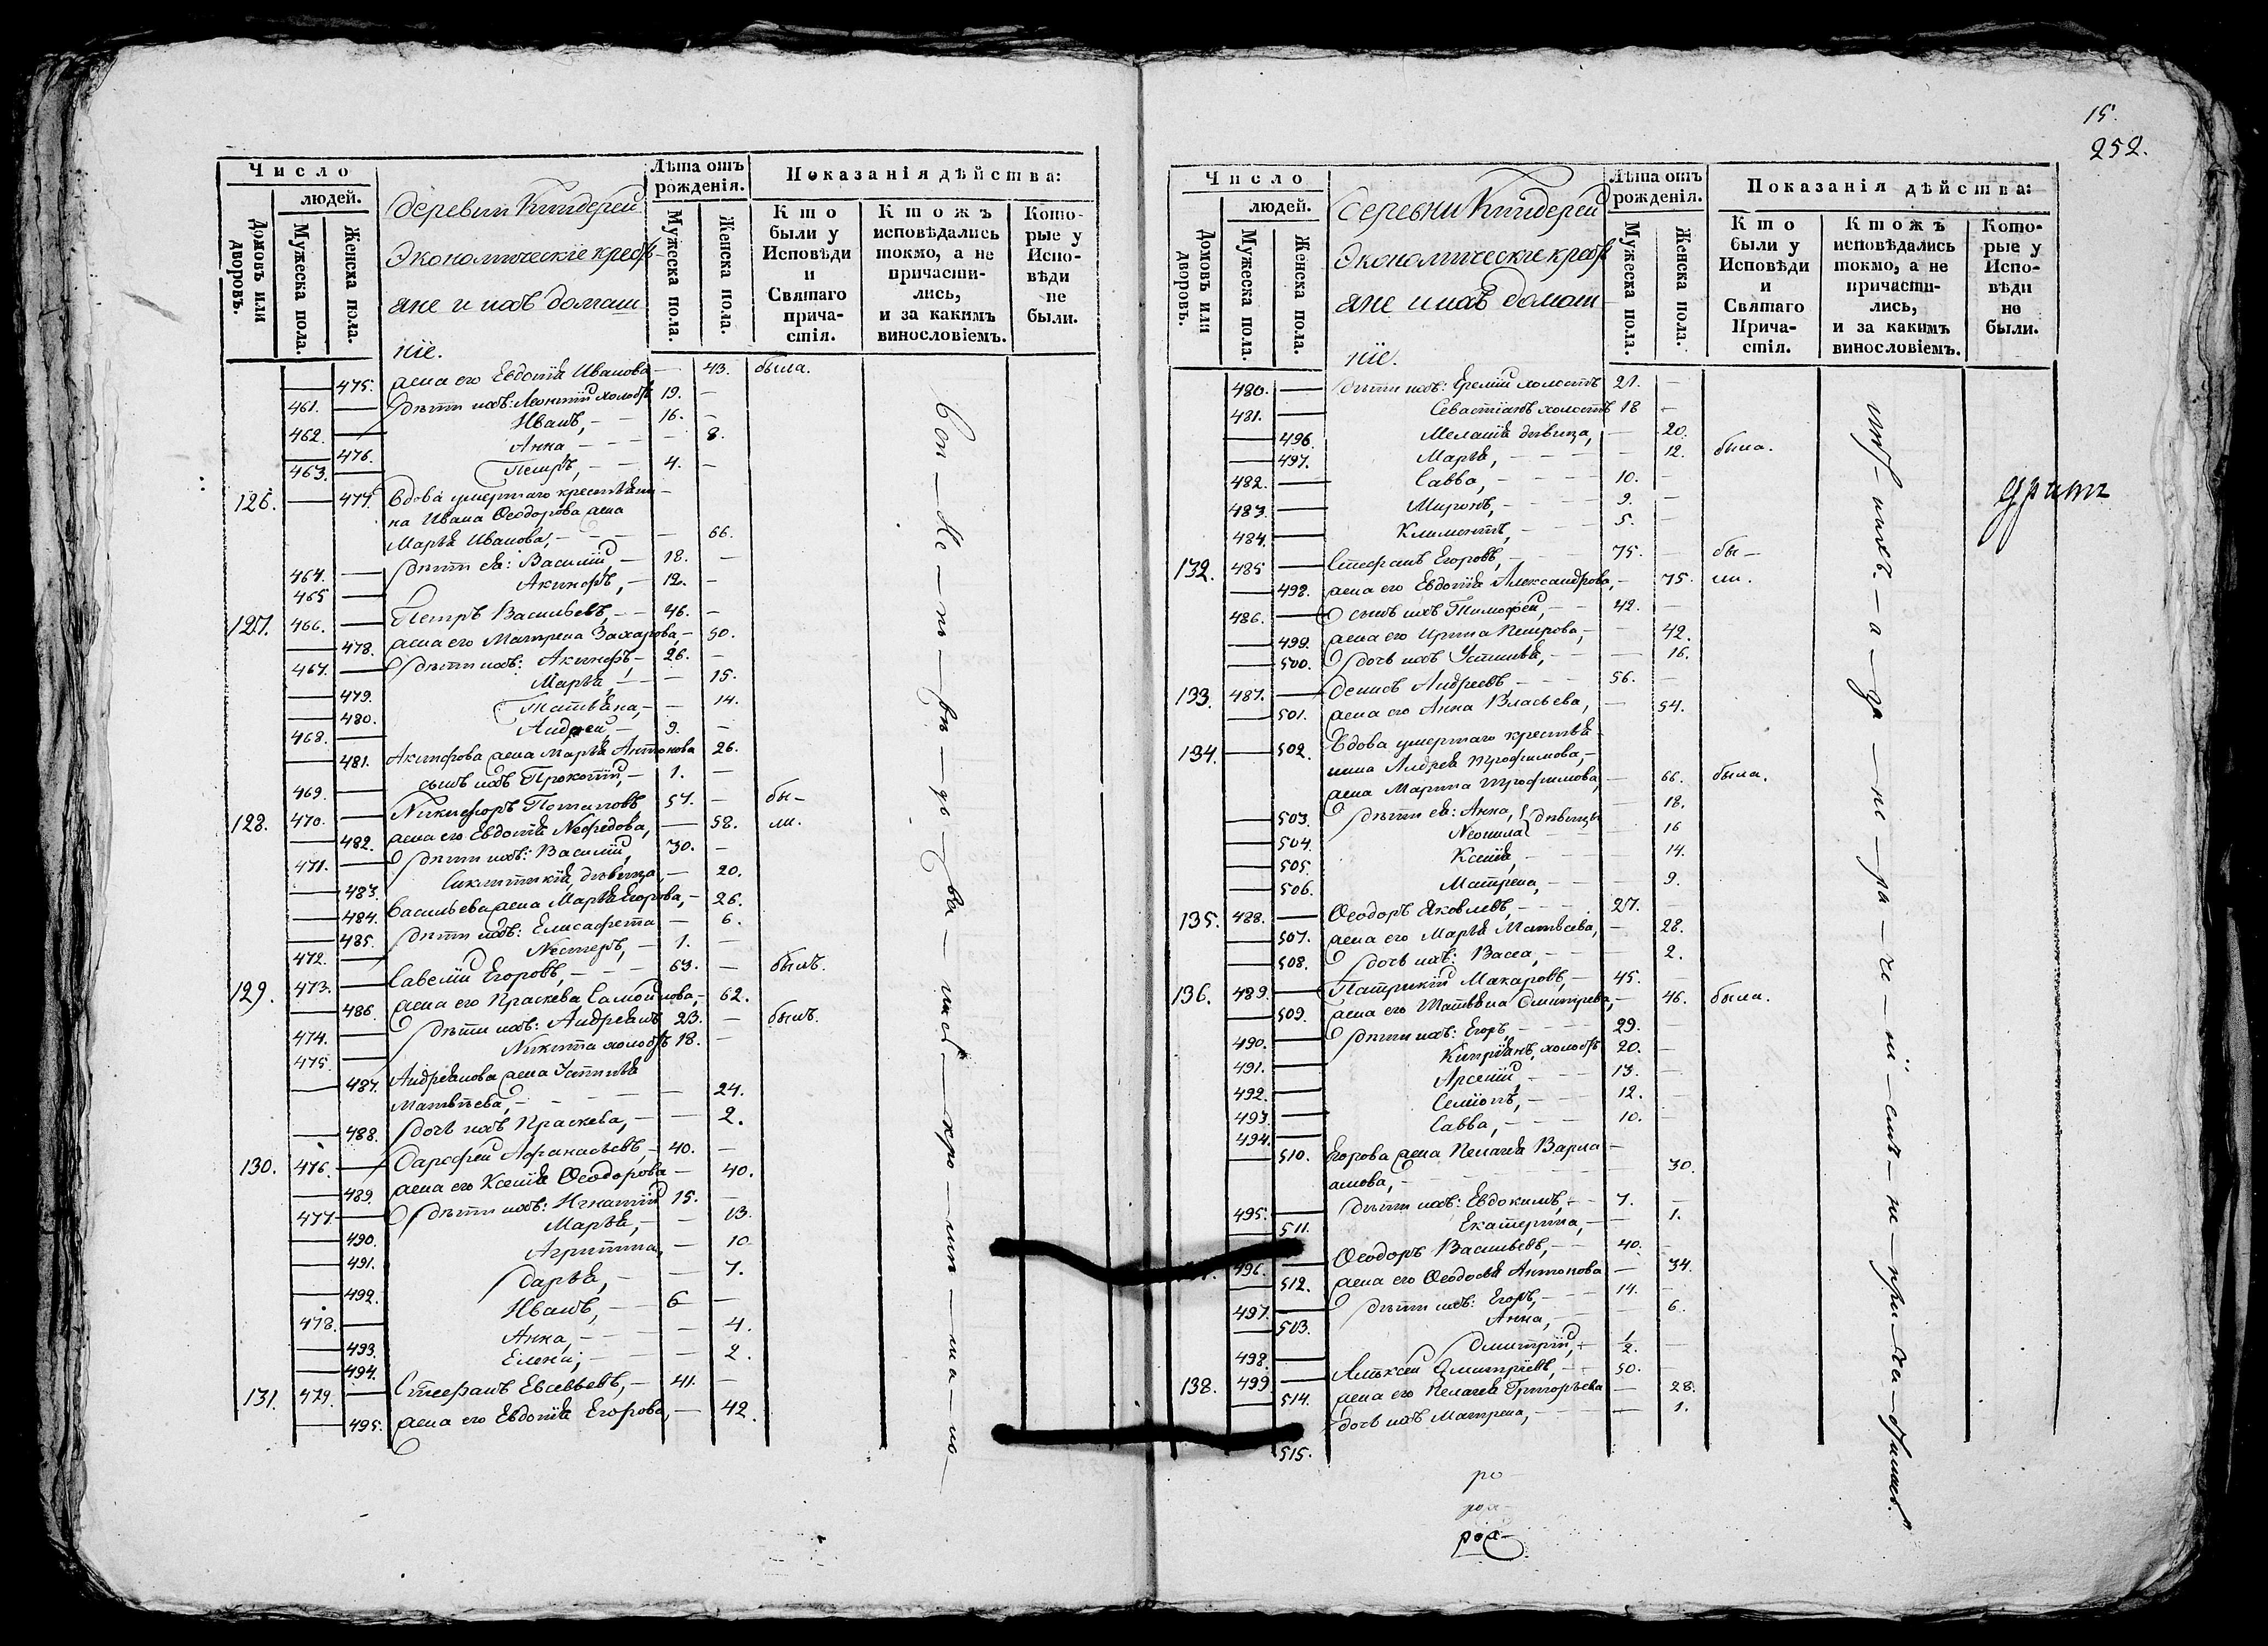 Число
людей.
Домовъ или дворовъ.
Мужеска пола.
Женска пола.
Деревни Киндерей
Экономическіе крестья-
яне и ихъ домаш
ніе.
Лѣта отъ рожденія.
Мужеска пола.
Женска пола.
Показанія дѣйства:
Кто были у Исповѣди и Святаго причастія.
Ктожъ исповѣдались токмо, а не причастились, и за какимъ винословіемъ.
Которые у Исповѣди не были.
475. жена его Евдотія Иванова — 43. была.
461. — Дѣти ихъ: Леонтій холостъ 19. —
462. — Иванъ, — 16. —
476. Анна — — 8.
463. — Петръ, — 4. —
126. — 477. Вдова умершаго крестьяни-
на Ивана Ѳеодорова жена
Марья Иванова, — 66.
464. — Дѣти ея: Василій, — 18. —
465 — Акинфъ, — 12. —
127. 466. — Петръ Васильевъ, — 46. —
478. жена его Матрена Захарова, — 50.
467. — Дѣти ихъ: Акинфъ, — 26. —
479. Марья, — 15.
480. Татьяна, — 14.
468. — Андрей, — 9. —
481. Акинфова жена Марья Антонова 26.
469. — сынъ ихъ Прокопій, — 1. —
128. 470. — Никифоръ Потаповъ 57. — бы-
482. жена его Евдотія Нефедова, — 58. ли.
471. — Дѣти ихъ: Василій, 30. —
483. Сиклитикія, дѣвица, — 20.
484. Васильева жена Марья Егорова, — 26.
485. Дѣти ихъ: Елисафета — 6.
472. — Нестеръ, — 1. —
129. 473. — Савелій Егоровъ, — 63. — былъ.
486. жена его Праскева Самойлова, — 62.
474. — Дѣти ихъ: Андреянъ 23. — былъ.
475. — Никита холостъ 18. —
487. Андреянова жена Устинья
Матвѣева, — 24.
488. Дочь ихъ Праскева, — 2.
130. 476. — Дарофей Афанасьевъ, — 40. —
489. жена его Ксенія Ѳеодорова — 40.
477. — Дѣти ихъ: Игнатій 15. —
490. Марья, — 13.
491. Агрипина, — 10
492. Дарья, — 7.
478. — Иванъ, — 6 —
493. Анна, — 4.
494. Елена, — 2.
131. 479. — Стефанъ Евсевьевъ, — 41. —
495. жена его Евдотія Егорова, — 42.
15.
252.
Число
людей.
Домовъ или дворовъ.
Мужеска пола.
Женска пола.
Деревни Киндерей
Экономическіе кресть
яне и ихъ домаш
ніе.
Лѣта отъ рожденія.
Мужеска пола.
Женска пола.
Показанія дѣйства:
Кто были у Исповѣди и Святаго Причастія.
Ктожъ исповѣдались токмо, а не причастились, и за какимъ винословіемъ.
Которые у Исповѣди не были.
480. — Дѣти ихъ: Еремій холостъ 21. —
481. — Севастіянъ холостъ 18 —
496. Меланія дѣвица, — 20.
497. Марья, — 12. была.
482. — Савва, — 10. —
483. — Миронъ, — 9. —
484. — Климентъ, — 5. —
132. 485 — Стефанъ Егоровъ, — 75. — бы —
498. жена его Евдотія Александрова, — 75. ли.
486. — сынъ ихъ Тимофей, — 42. —
499. жена его Ирина Петрова, — 42.
500. Дочь ихъ Устинья, — 16.
133. 487. — Денисъ Андреевъ — 56. —
501. жена его Анна Власьева, — 54.
134. — 502. Вдова умершаго крестья-
нина Андрея Трофимова, —
жена Марина Трофимова, — 66. была.
503. Дѣти ея: Анна, } дѣвицы — 18.
504. Неонила — 16
505. Ксенія, — 14.
506. Матрена, — 9.
135. 488. — Ѳеодоръ Яковлевъ, — 27. —
507. жена его Марья Матвѣева, — 28.
508. Дочь ихъ: Васса, — 2.
136. 489. — Патрикій Макаровъ, — 45. —
509. жена его Татьяна Дмитрева, — 46. была.
490. — Дѣти ихъ: Егоръ, — 29. —
491. — Кипріянъ, холостъ 20. —
492. — Арсеній, — 13. —
493. — Семіонъ, — 12. —
494. — Савва, — 10. —
510. Егорова жена Пелагея Варла-
амова, — 30.
495. — Дѣти ихъ: Евдокимъ, — 7. —
511. Екатерина, — 1.
496. — Ѳеодоръ Васильевъ, — 40. —
512. жена его Ѳеодосья Антонова — 34.
497. — Дѣти ихъ: Егоръ, — 14. —
503. Анна, — 6.
498. — Дмитрій, — 1/2. —
138. 499 — Алексѣй Дмитріевъ, — 50. —
514. жена его Пелагея Григорьева — 28.
515. Дочь ихъ Матрена, — 1.
ро
роа-